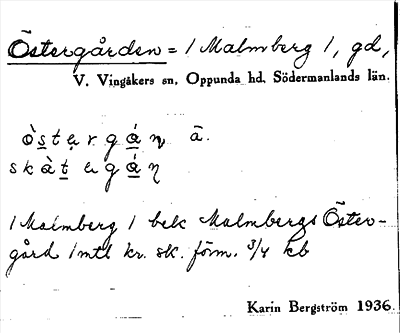 Östergården = / Malmberg /, gd,
V. Vingåkers sn, Oppunda hd. Södermanlands län.
ò̀s̲t̲ergá̲n ā.
skàt̲ egá̲n
/ Malmberg / bek Malmbergs Öster-
gård 1 mtl kr. sk. förm. 3/4 kb
Karin Bergström 1936.